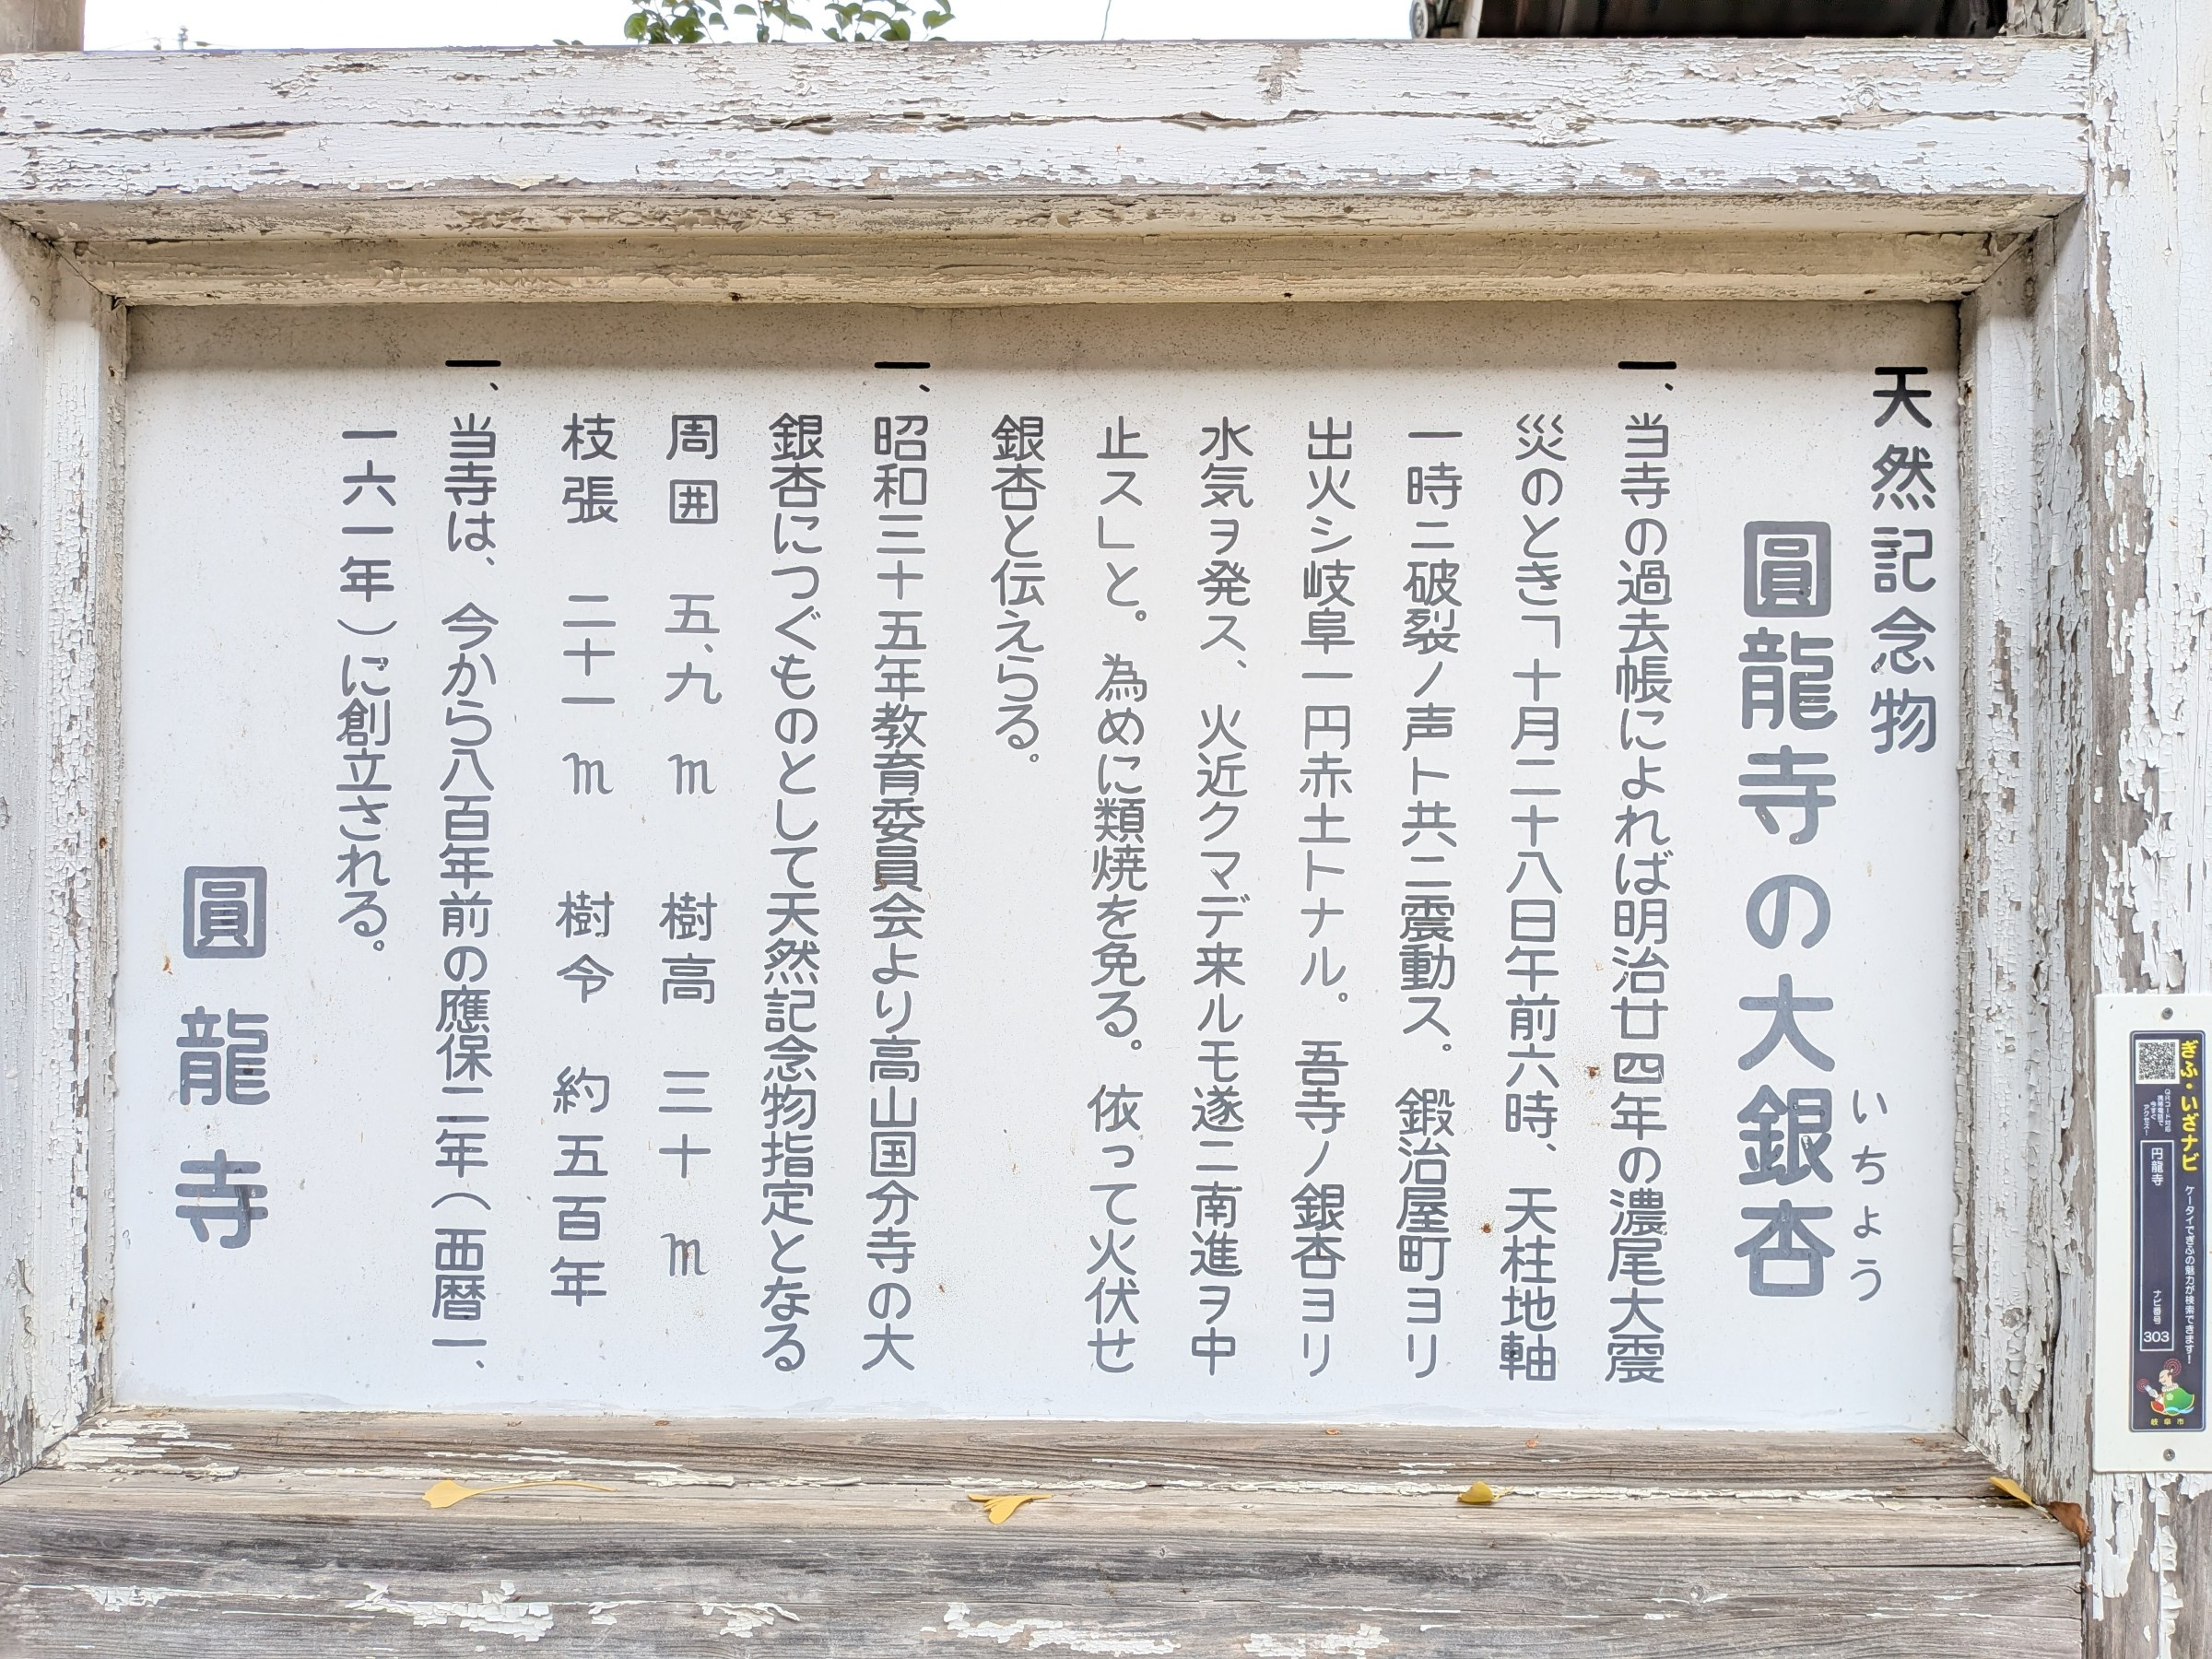 天然記念物
圓龍寺の大銀杏
いちょう
一、当寺の過去帳によれば明治廿四年の濃尾大震
災のとき「十月二十八日午前六時、天柱地軸
一時ニ破裂ノ声ト共ニ震動ス。鍛治屋町ヨリ
出火シ岐阜一円赤土トナル。吾寺ノ銀杏ヨリ
水気ヲ発ス、火近クマデ来ルモ遂ニ南進ヲ中
止ス」と。為めに類焼を免る。依って火伏せ
銀杏と伝えらる。
一、昭和三十五年教育委員会より高山国分寺の大
銀杏につぐものとして天然記念物指定となる
周囲 五、九 m 樹高 三十 m
枝張 二十一 m 樹令 約五百年
一、当寺は、今から八百年前の應保二年(西暦一、
一六一年)に創立される。
圓龍寺
ぎふ・いざナビ
ケータイでぎふの魅力が検索できます!
QRコード対応
携帯電話で
今すぐ
アクセス!
円龍寺
ナビ番号
303
岐阜市